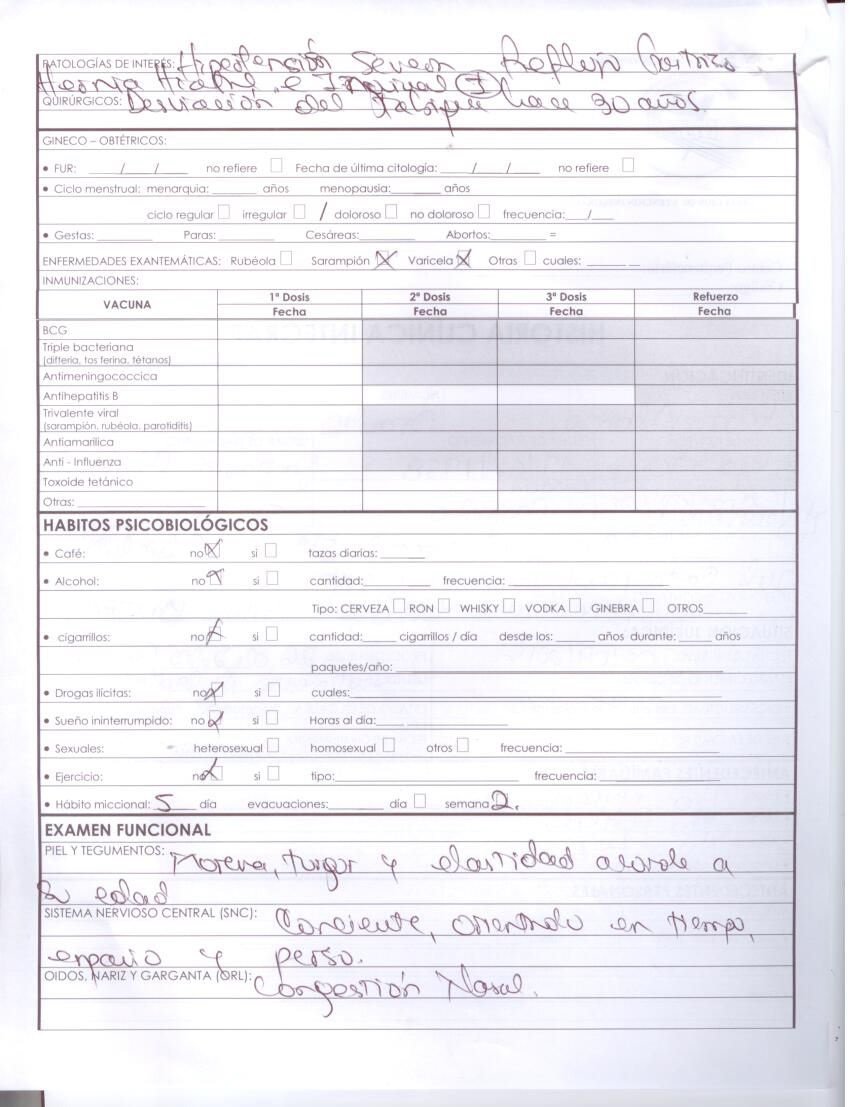 PATOLOGÍAS DE INTERÉS: Hipertención Severa Reflujo Gastrico.
Hernia Hiatal e Inguinal (I)
QUIRÚRGICOS: Desviación del Tabique hace 30 años.
GINECO – OBTÉTRICOS:
• FUR: ____/____/____ no refiere ☐ Fecha de última citología: ____/____/____ no refiere ☐
• Ciclo menstrual: menarquia: ______ años menopausia: ______ años
ciclo regular ☐ irregular ☐ / doloroso ☐ no doloroso ☐ frecuencia:___/___
• Gestas: ______ Paras: ______ Cesáreas: ______ Abortos: ______ =
ENFERMEDADES EXANTEMÁTICAS: Rubéola ☐ Sarampión ☒ Varicela ☒ Otras ☐ cuales: ______
INMUNIZACIONES:
VACUNA 1ª Dosis 2ª Dosis 3ª Dosis Refuerzo
Fecha Fecha Fecha Fecha
BCG
Triple bacteriana
(difteria, tos ferina, tétanos)
Antimeningococcica
Antihepatitis B
Trivalente viral
(sarampión, rubéola, parotiditis)
Antiamarilica
Anti - Influenza
Toxoide tetánico
Otras: ______
HABITOS PSICOBIOLÓGICOS
• Café: no ☒ si ☐ tazas diarias: ______
• Alcohol: no ☒ si ☐ cantidad: ______ frecuencia: ______
Tipo: CERVEZA ☐ RON ☐ WHISKY ☐ VODKA ☐ GINEBRA ☐ OTROS______
• cigarrillos: no ☒ si ☐ cantidad:_____ cigarrillos / día desde los: _____ años durante: ____ años
paquetes/año: ______
• Drogas ilícitas: no ☒ si ☐ cuales: ______
• Sueño ininterrumpido: no ☒ si ☐ Horas al día: ______
• Sexuales: heterosexual ☐ homosexual ☐ otros ☐ frecuencia: ______
• Ejercicio: no ☒ si ☐ tipo: ______ frecuencia: ______
• Hábito miccional: 5 día evacuaciones: ______ día ☐ semana 2.
EXAMEN FUNCIONAL
PIEL Y TEGUMENTOS: Morena, turgor y elastidad acorde a
su edad
SISTEMA NERVIOSO CENTRAL (SNC): Conciente, orientado en tiempo,
espacio y perso.
OIDOS, NARIZ Y GARGANTA (ORL): Congestión Nasal.